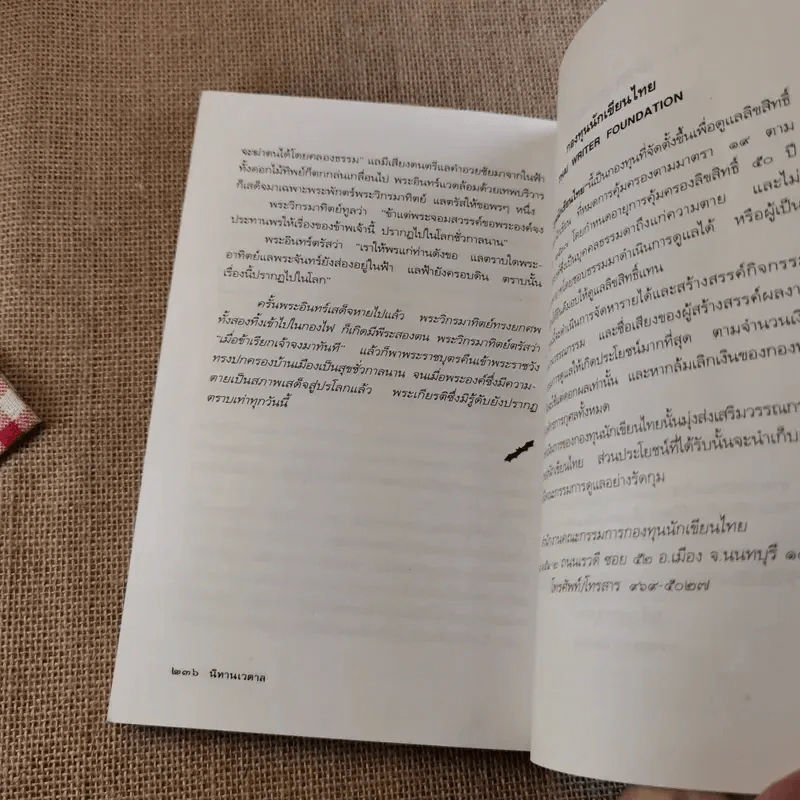 จะฆ่าตนได้โดยคลองธรรม" แลมีเสียงดนตรีแลคำอวยชัยมาจากในฟ้า
ทั้งดอกไม้ทิพย์ก็ตกกล่นเกลื่อนไป พระอินทร์แวดล้อมด้วยเทพบริวาร
ก็เสด็จมาเฉพาะพระพักตร์พระวิกรมาทิตย์ แลตรัสให้ขอพรๆ หนึ่ง
พระวิกรมาทิตย์ทูลว่า "ข้าแต่พระจอมสวรรค์ขอพระองค์จง
ประทานพรให้เรื่องของข้าพเจ้านี้ ปรากฏไปในโลกชั่วกาลนาน"
พระอินทร์ตรัสว่า "เราให้พรแก่ท่านดังขอ แลตราบใดพระ-
อาทิตย์แลพระจันทร์ยังส่องอยู่ในฟ้า แลฟ้ายังครอบดิน ตราบนั้น
เรื่องนี้ปรากฏไปในโลก"
ครั้นพระอินทร์เสด็จหายไปแล้ว พระวิกรมาทิตย์ทรงยกศพ
ทั้งสองทิ้งเข้าไปในกองไฟ ก็เกิดมีพีระสองตน พระวิกรมาทิตย์ตรัสว่า
"เมื่อข้าเรียกเจ้าจงมาทันที" แล้วก็พาพระราชบุตรคืนเข้าพระราชวัง
ทรงปกครองบ้านเมืองเป็นสุขชั่วกาลนาน จนเมื่อพระองค์ซึ่งมีความ-
ตายเป็นสภาพเสด็จสู่ปรโลกแล้ว พระเกียรติซึ่งมิรู้ดับยังปรากฏ
ตราบเท่าทุกวันนี้
๒๓๖ นิทานเวตาล
กองทุนนักเขียนไทย
WRITER FOUNDATION
นี้เป็นกองทุนที่จัดตั้งขึ้นเพื่อดูแลลิขสิทธิ์
ที่หมดการคุ้มครองตามมาตรา ๑๙ ตาม
โดยกำหนดอายุการคุ้มครองลิขสิทธิ์ ๕๐ ปี
เป็นบุคคลธรรมดาถึงแก่ความตาย และไม่
โดยชอบธรรมมาดำเนินการดูแลได้ หรือผู้เป็น
มอบให้ดูแลลิขสิทธิ์แทน
ดำเนินการจัดหารายได้และสร้างสรรค์กิจกรรม
และชื่อเสียงของผู้สร้างสรรค์ผลงาน
ดูแลให้เกิดประโยชน์มากที่สุด ตามจำนวนเงิน
ดอกผลเท่านั้น และหากล้มเลิกเงินของกองทุน
การกุศลทั้งหมด
ของกองทุนนักเขียนไทยนั้นมุ่งส่งเสริมวรรณกรรม
นักเขียนไทย ส่วนประโยชน์ที่ได้รับนั้นจะนำเก็บ
คณะกรรมการดูแลอย่างรัดกุม
คณะกรรมการกองทุนนักเขียนไทย
ถนนเรวดี ซอย ๕๒ อ.เมือง จ.นนทบุรี
โทรศัพท์/โทรสาร ๙๖๙-๕๐๒๗